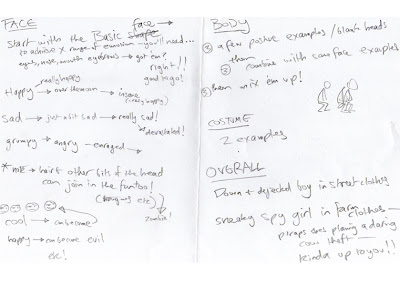 FACE
face →
Start with the Basic shape
to achieve X range of emotion - you'll need...
eyes, nose, mouth eyebrows → got 'em?
right!!
good to go!
really happy
Happy → over the moon → insane
(really happy)
Sad → just a bit sad → really sad!
* devastated!
grumpy → angry → enraged →
* NOTE → hair & other bits of the head
can join in the fun too!
(tongues etc)
zombie!
cool → can become
happy → can become evil
etc!
BODY
① a few posture examples / blank heads
then
② combine with some face examples
③ then mix 'em up!
COSTUME
2 examples
OVERALL
Down + dejected boy in street clothing
sneaky spy girl in farm
clothes
p'raps shes planning a daring
cow theft
Kinda up to you!!